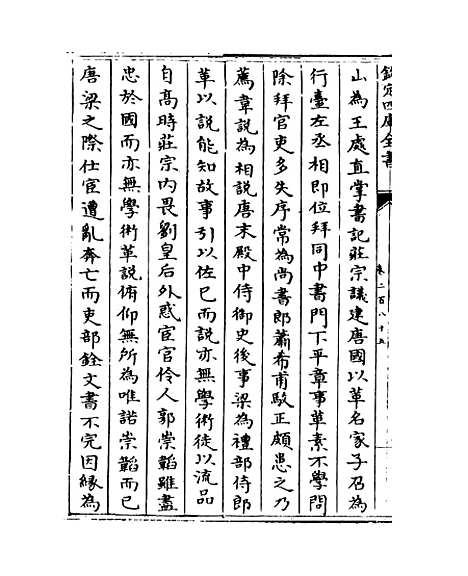 欽定四庫全書
卷二百八十五
山為王處直掌書記莊宗議建唐國以革名家子召為
行臺左丞相即位拜同中書門下平章事革素不學問
除拜官吏多失序常為尚書郎蕭希甫駮正頗患之乃
薦韋說為相說唐末殿中侍御史後事梁為禮部侍郎
革以說能知故事引以佐已而說亦無學術徒以流品
自高時莊宗內畏劉皇后外惑宦官伶人郭崇韜雖盡
忠於國而亦無學術革說俯仰無所為唯諾崇韜而已
唐梁之際仕宦遭亂奔亡而吏部銓文書不完因緣為